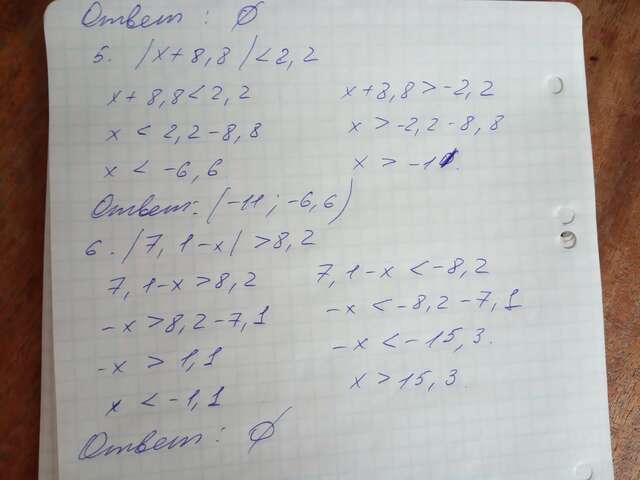 Ответ: ∅
5. |x+8,8|<2,2
x+8,8<2,2 x+8,8>-2,2
x<2,2-8,8 x>-2,2-8,8
x<-6,6 x>-11.
Ответ: (-11; -6,6)
6. |7,1-x|>8,2
7,1-x>8,2 7,1-x<-8,2
-x>8,2-7,1 -x<-8,2-7,1
-x>1,1 -x<-15,3.
x<-1,1 x>15,3.
Ответ: ∅